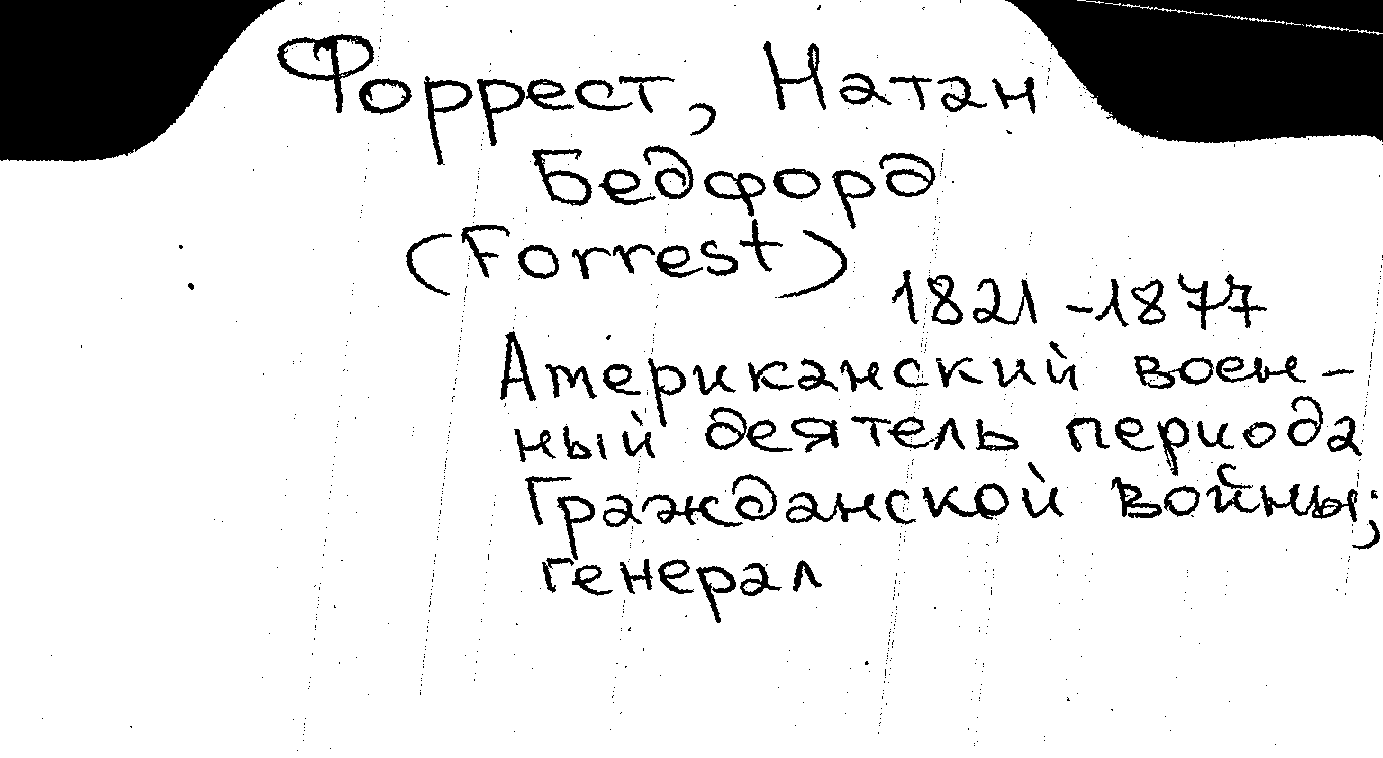 Форрест, Натан
Бедфорд
(Forrest)
1821-1877
Американский воен-
ный деятель периода
Гражданской войны;
генерал